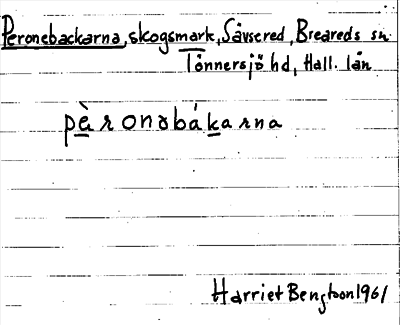 Peronebackarna, skogsmark, Sävsered, Breareds sn
Tönnersjö hd, Hall. län
pèronəbákarna
Harriet Bengtson 1961